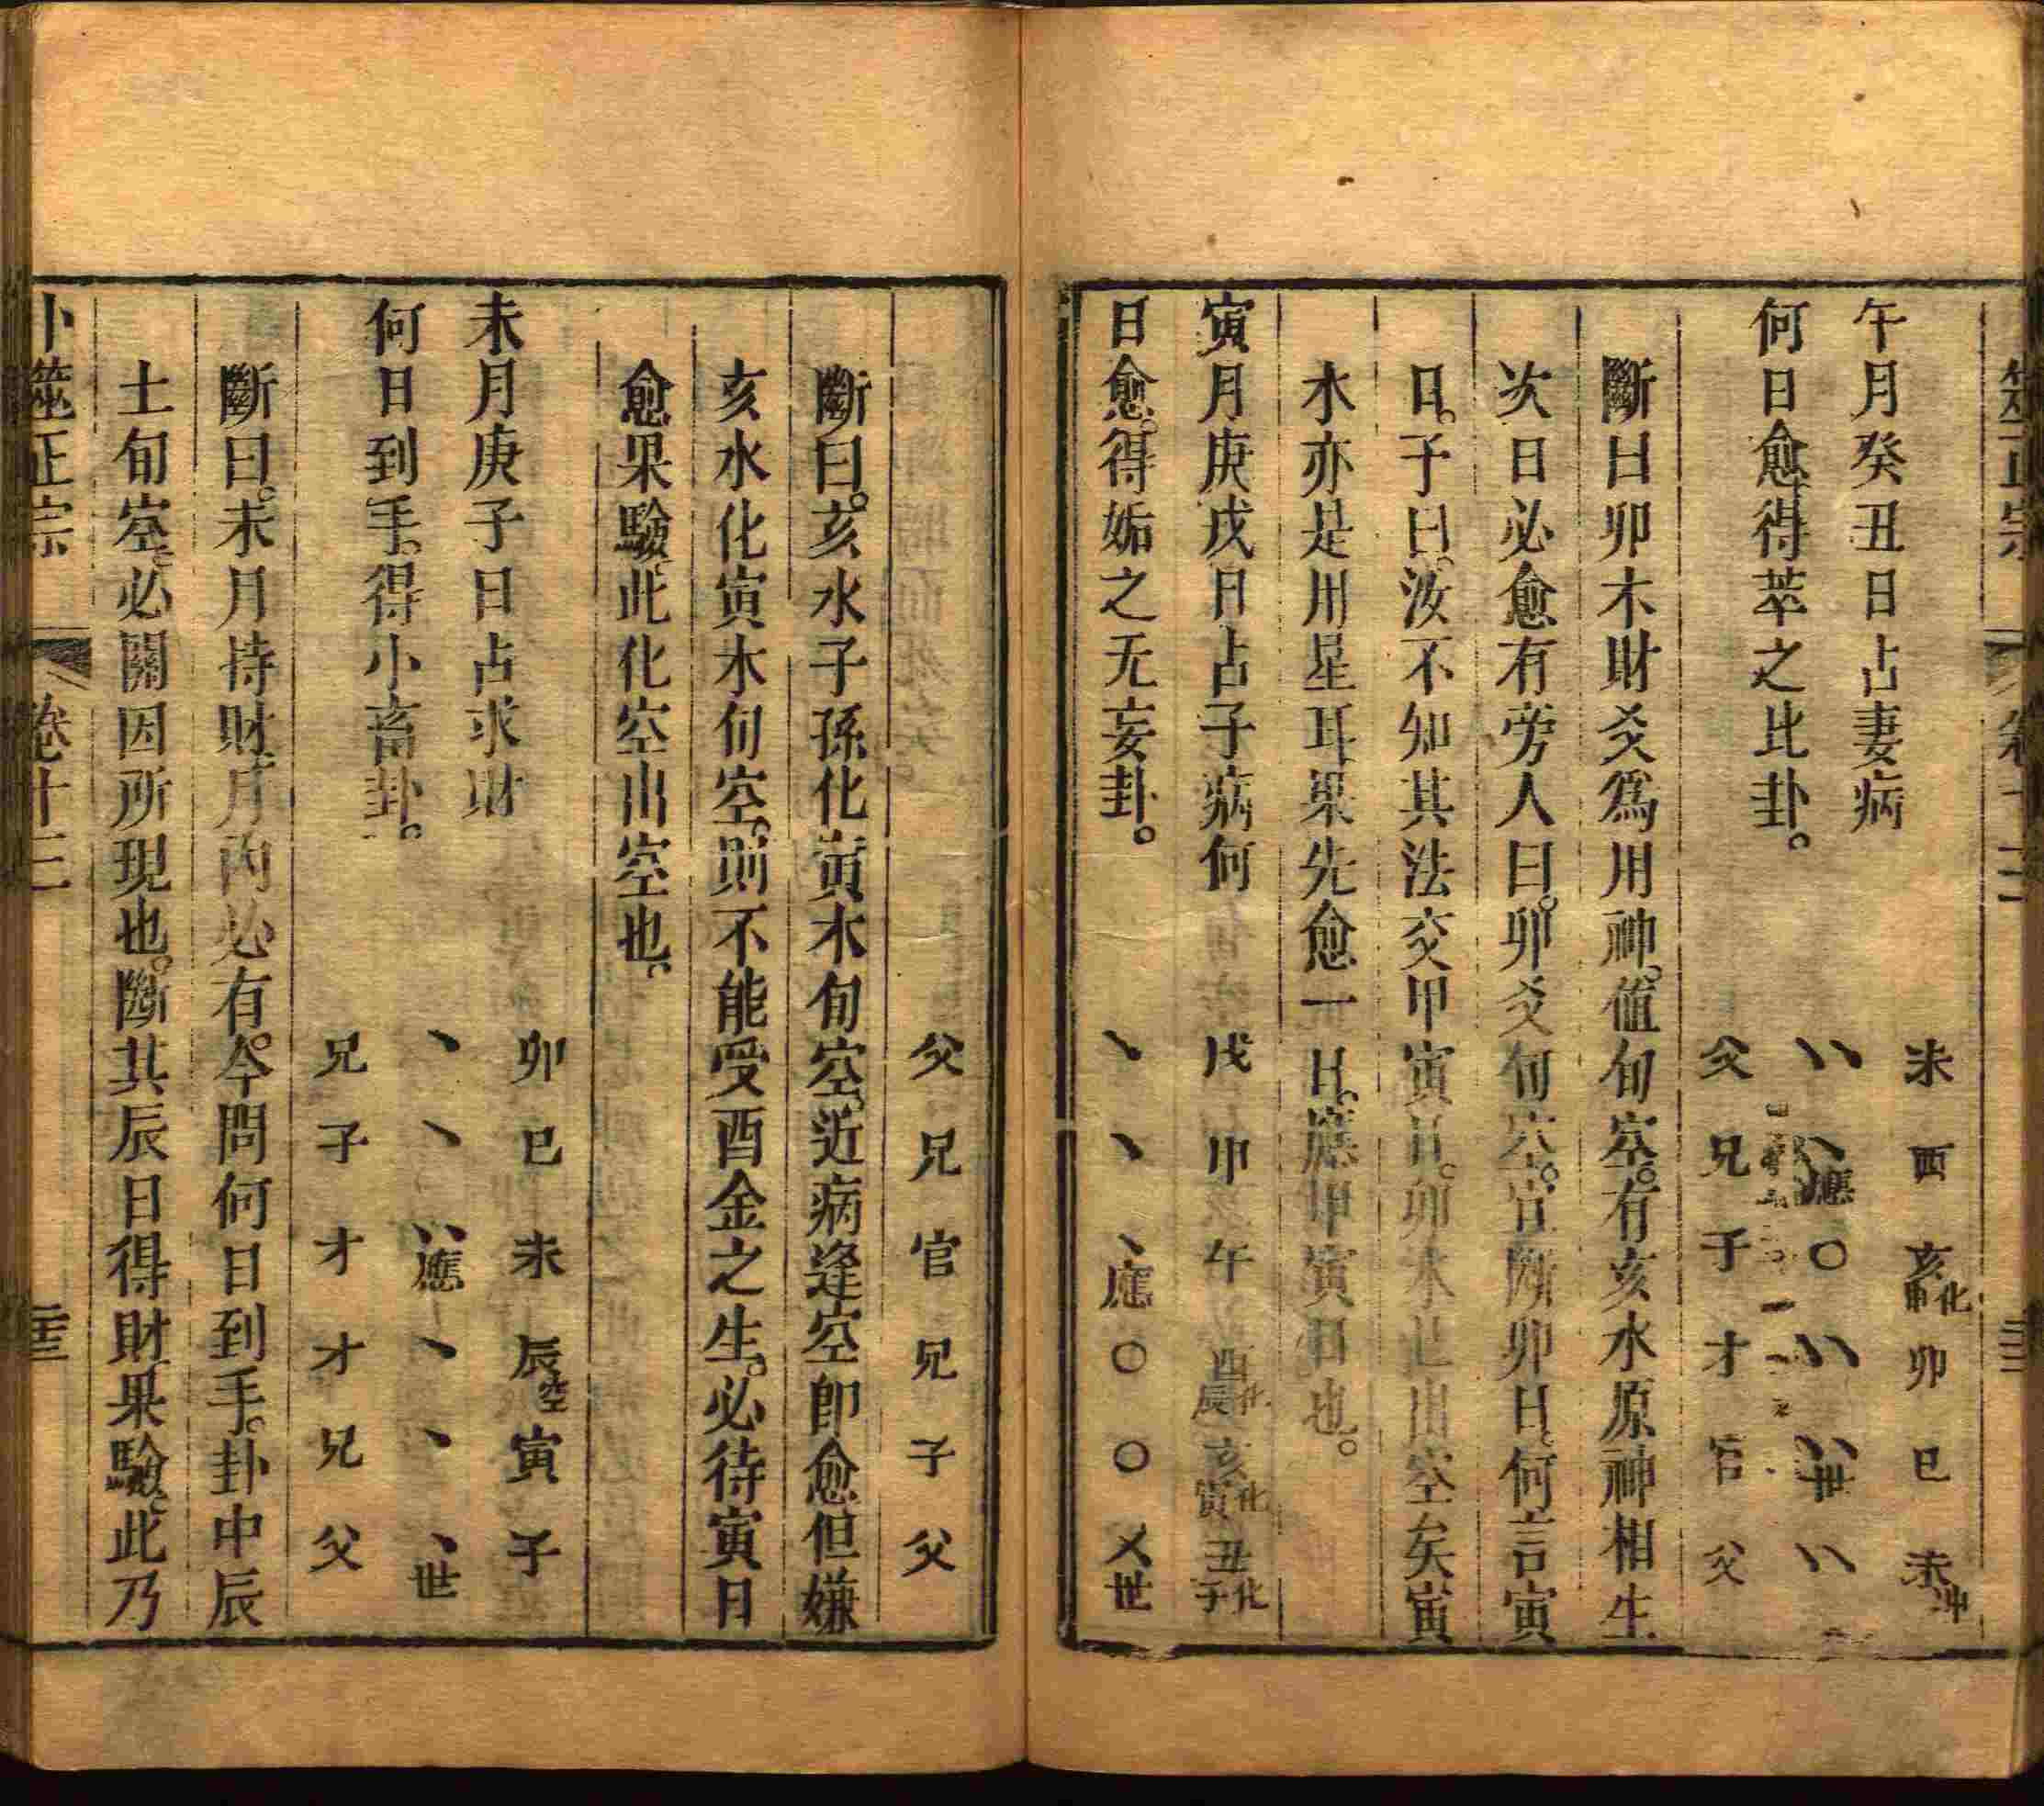 午月癸丑日占妻病　未　酉　亥化申　卯　巳　未冲
何日愈得萃之比卦。　〵〵　〵〵應　〇　〵〵　〵〵世　〵〵
父　兄　子　才　官　父
斷曰卯木財爻爲用神。值旬空。有亥水原神相生
次日必愈有旁人曰。卯爻旬空。宜斷卯日。何言寅
日。予曰。汝不知其法交甲寅日。卯木已出空矣寅
木亦是用星耳果先愈一日。應甲寅日也。
寅月庚戌日占子病何　戌　申　午　酉化辰　亥化寅　丑化子
日愈。得姤之无妄卦。　〵　〵　〵應　〇　〇　乂世
父　兄　官　兄　子　父
斷曰。亥水子孫化寅木旬空。近病逢空即愈但嫌
亥水化寅木旬空。則不能受酉金之生。必待寅日
愈果驗。此化空出空也。
未月庚子日占求財　卯　巳　未　辰空　寅　子
何日到手。得小畜卦。　〵　〵　〵〵應　〵　〵　〵世
兄　子　才　才　兄　父
斷曰。未月持財。月內必有。今問何日到手。卦中辰
土旬空。必關因所現也。斷其辰日得財果驗。此乃
卜筮正宗　卷十三